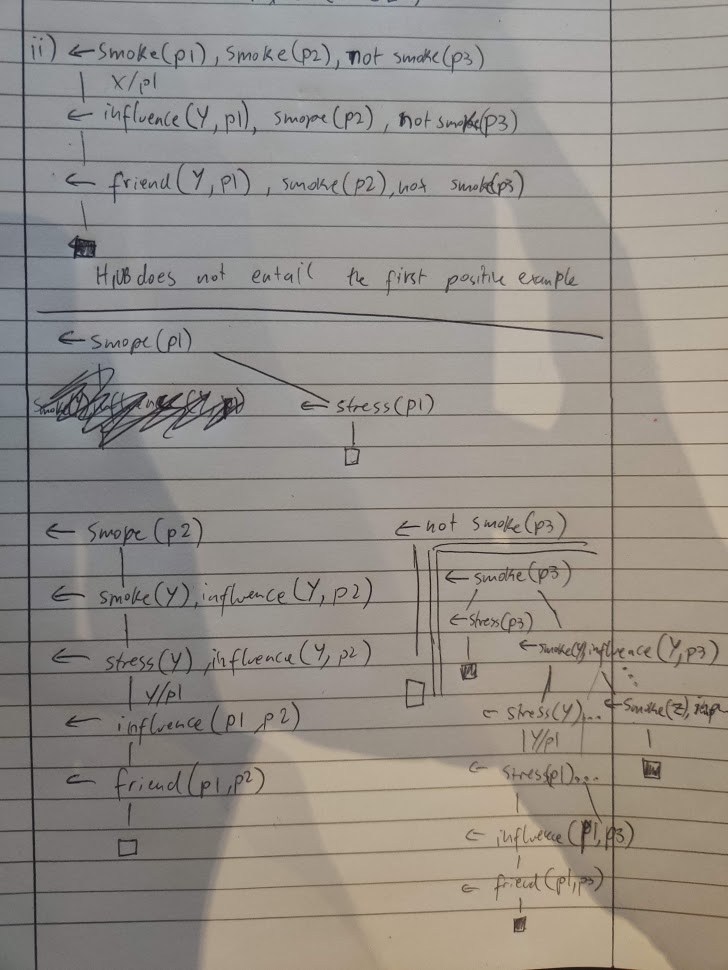 ii) ← smoke(p1), smoke(p2), not smoke(p3)
X/p1
← influence(Y,p1), smope(p2), not smoke(p3)
← friend(Y,p1), smoke(p2), not smoke(p3)
H,UB does not entail the first positive example
← smope(p1)
← stress(p1)
← smope(p2)
← smoke(Y), influence(Y,p2)
← stress(Y), influence(Y,p2)
Y/p1
← influence(p1,p2)
← friend(p1,p2)
← not smoke(p3)
← smoke(p3)
← stress(p3)
← smoke(Y), influence(Y,p3)
← stress(Y)...
← smoke(Z),
Y/p1
← stress(p1)...
← influence(p1,p3)
← friend(p1,p3)